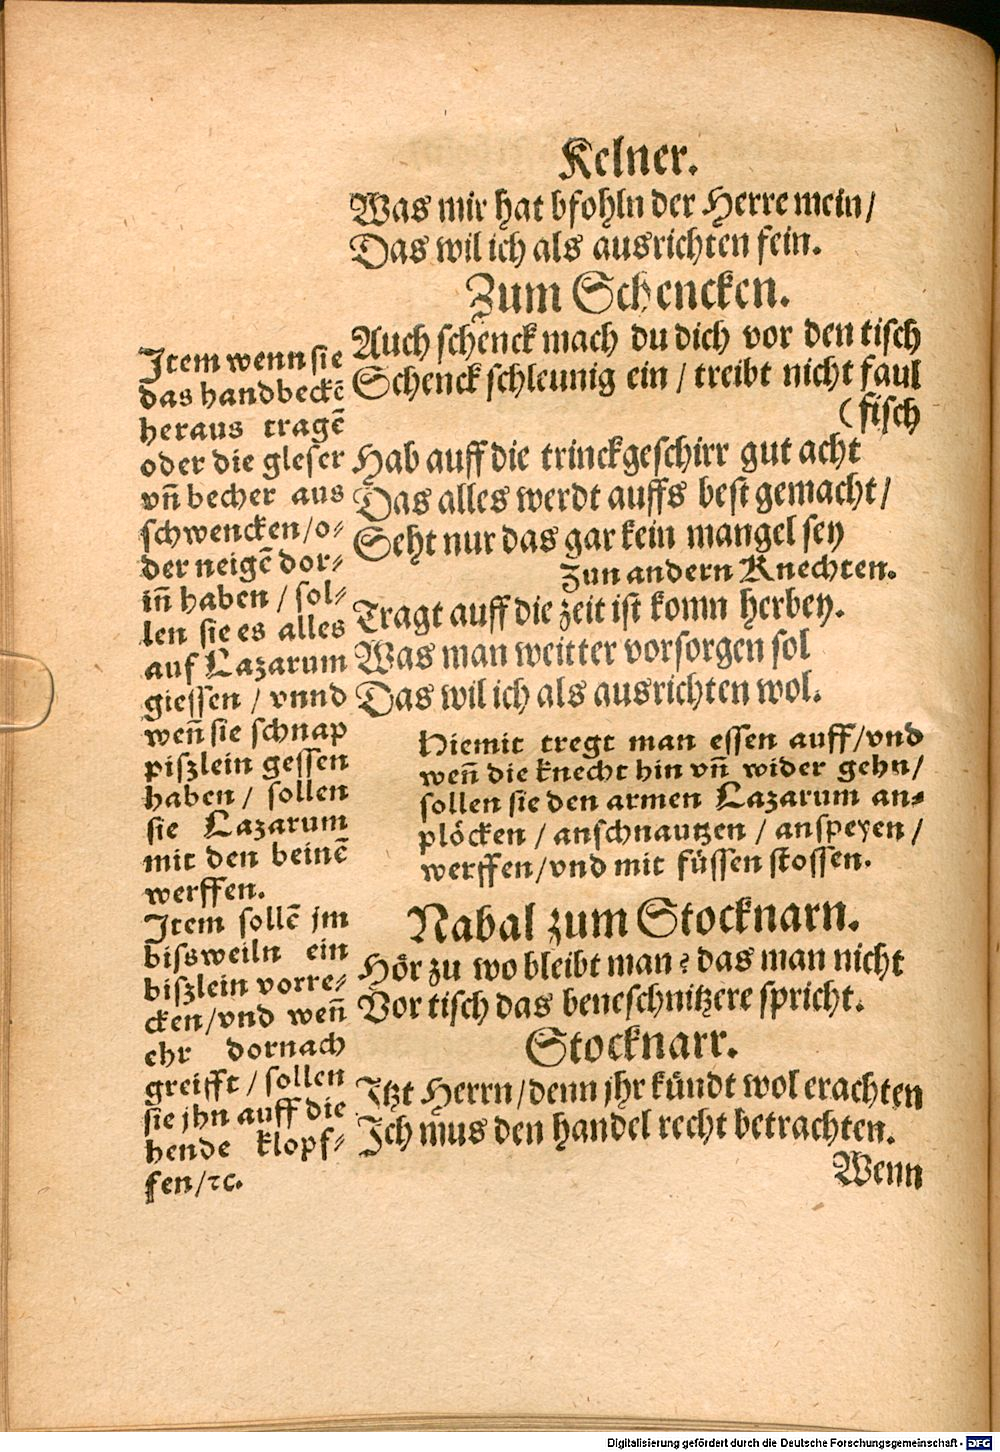 Kelner.
Was mir hat bfohln der Herre mein /
Das wil ich als ausrichten fein.
Zum Schencken.
Auch schenck mach du dich vor den tisch
Schenck schleunig ein / treibt nicht faul
(fisch
Hab auff die trinckgeschirr gut acht
Das alles werdt auffs best gemacht /
Seht nur das gar kein mangel sey
Zun andern Knechten.
Tragt auff die zeit ist komn herbey.
Was man weitter vorsorgen sol
Das wil ich als ausrichten wol.
Hiemit tregt man essen auff / vnd
weñ die knecht hin vñ wider gehn /
sollen sie den armen Lazarum an⸗
plöcken / anschnautzen / anspeyen /
werffen / vnd mit füssen stossen.
Item wenn sie
das handbeckẽ
heraus tragẽ
oder die gleser
vñ becher aus
schwencken / o⸗
der neigẽ dor⸗
iñ haben / sol⸗
len sie es alles
auf Lazarum
giessen / vnnd
weñ sie schnap
piszlein gessen
haben / sollen
sie Lazarum
mit den beinẽ
werffen.
Item sollẽ jm
bissweiln ein
biszlein vorre⸗
cken / vnd weñ
ehr dornach
greifft / sollen
sie jhn auff die
hende klopf⸗
fen / ꝛc.
Nabal zum Stocknarn.
Hör zu wo bleibt man? das man nicht
Vor tisch das beneschnitzere spricht.
Stocknarr.
Itzt Herrn / denn jhr kündt wol erachten
Ich mus den handel recht betrachten.
Wenn
Digitalisierung gefördert durch die Deutsche Forschungsgemeinschaft - DFG